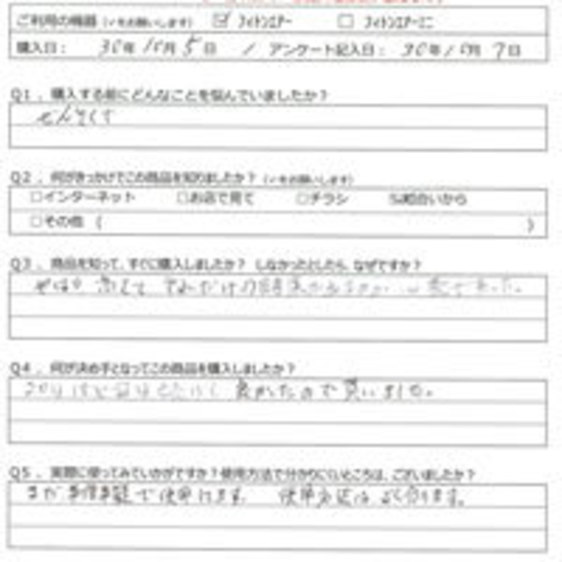 ご利用の機器（✓をお願いします） ☑ フィトンエアー □ フィトンエアーミニ
購入日： 30年 10月 5日 ／ アンケート記入日： 30年 10月 7日
Q1．購入する前にどんなことを悩んでいましたか？
ぜんそくで
Q2．何がきっかけでこの商品を知りましたか？（✓をお願いします）
□インターネット □お店で見て □チラシ ☑知合いから
□その他（ ）
Q3．商品を知って、すぐに購入しましたか？ しなかったとしたら、なぜですか？
高くて それだけの
Q4．何が決め手となってこの商品を購入しましたか？
良かったので買いました。
Q5．実際に使ってみていかがですか？使用方法で分かりにくいところは、ございましたか？
まだ で使用 使用方法は よく分ります。